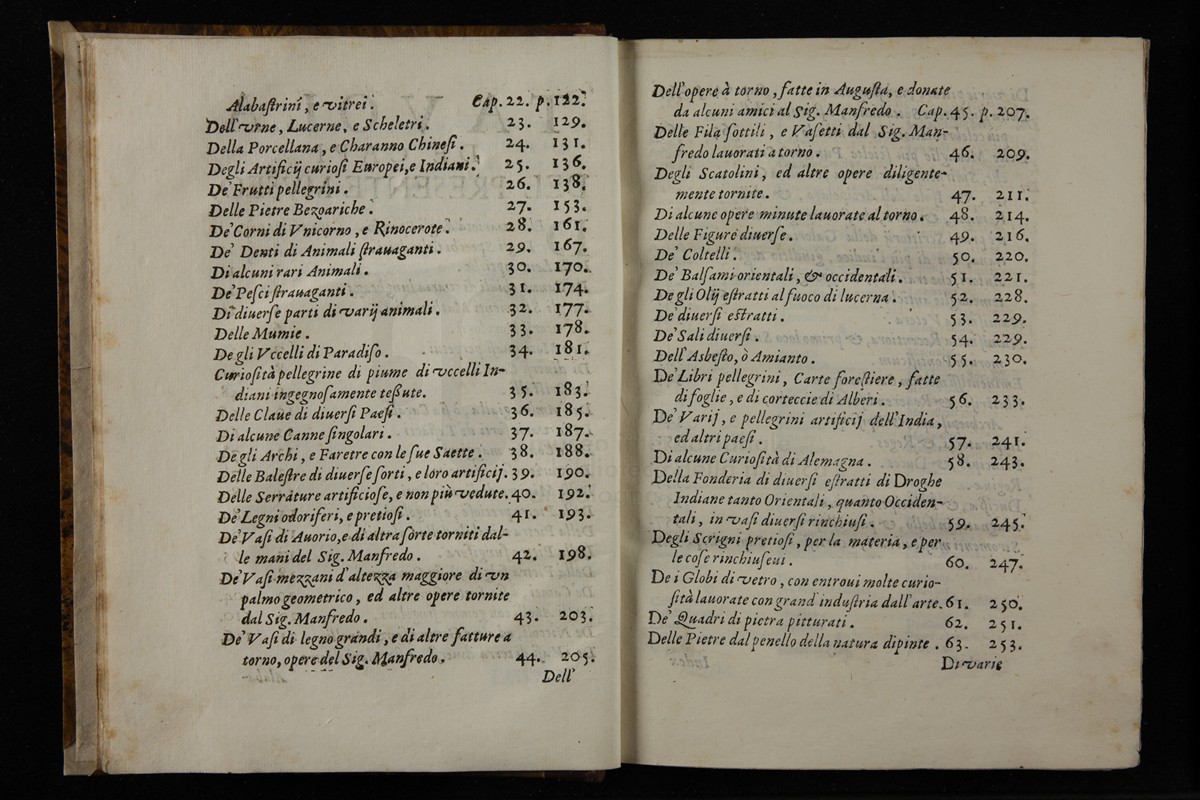 Alabaſtrini, e vitrei. Cap. 22. p. 122.
Dell'vrne, Lucerne, e Scheletri. 23. 129.
Della Porcellana, e Charanno Chineſi. 24. 131.
Degli Artificij curioſi Europei, e Indiani. 25. 136.
De' Frutti pellegrini. 26. 138.
Delle Pietre Bezoariche. 27. 153.
De' Corni di Vnicorno, e Rinocerote. 28. 161.
De' Denti di Animali ſtrauaganti. 29. 167.
Di alcuni rari Animali. 30. 170.
De' Peſci ſtrauaganti. 31. 174.
Di diuerſe parti di varij animali. 32. 177.
Delle Mumie. 33. 178.
Degli Vccelli di Paradiſo. 34. 181.
Curioſità pellegrine di piume di vccelli In-
diani ingegnoſamente teßute. 35. 183.
Delle Claue di diuerſi Paeſi. 36. 185.
Di alcune Canne ſingolari. 37. 187.
Degli Archi, e Faretre con le ſue Saette. 38. 188.
Delle Baleſtre di diuerſe ſorti, e loro artificij. 39. 190.
Delle Serrature artificioſe, e non più vedute. 40. 192.
De' Legni odoriferi, e pretioſi. 41. 193.
De' Vaſi di Auorio, e di altra ſorte torniti dal-
le mani del Sig. Manfredo. 42. 198.
De' Vaſi mezzani d'altezza maggiore di vn
palmo geometrico, ed altre opere tornite
dal Sig. Manfredo. 43. 203.
De' Vaſi di legno grandi, e di altre fatture a
torno, opere del Sig. Manfredo. 44. 205.
Dell'
Dell'opere à torno, fatte in Auguſta, e donate
da alcuni amici al Sig. Manfredo. Cap. 45. p. 207.
Delle Fila ſottili, e Vaſetti dal Sig. Man-
fredo lauorati a torno. 46. 209.
Degli Scatolini, ed altre opere diligente-
mente tornite. 47. 211.
Di alcune opere minute lauorate al torno. 48. 214.
Delle Figure diuerſe. 49. 216.
De' Coltelli. 50. 220.
De' Balſami orientali, & occidentali. 51. 221.
Degli Olij eſtratti al fuoco di lucerna. 52. 228.
De' diuerſi eſtratti. 53. 229.
De' Sali diuerſi. 54. 229.
Dell'Asbeſto, ò Amianto. 55. 230.
De' Libri pellegrini, Carte foreſtiere, fatte
di foglie, e di corteccie di Alberi. 56. 233.
De' Varij, e pellegrini artificij dell'India,
ed altri paeſi. 57. 241.
Di alcune Curioſità di Alemagna. 58. 243.
Della Fonderia di diuerſi eſtratti di Droghe
Indiane tanto Orientali, quanto Occiden-
tali, in vaſi diuerſi rinchiuſi. 59. 245.
Degli Scrigni pretioſi, per la materia, e per
le coſe rinchiuſeui. 60. 247.
De i Globi di vetro, con entroui molte curio-
ſità lauorate con grand'induſtria dall'arte. 61. 250.
De' Quadri di pietra pitturati. 62. 251.
Delle Pietre dal penello della natura dipinte. 63. 253.
Di varie